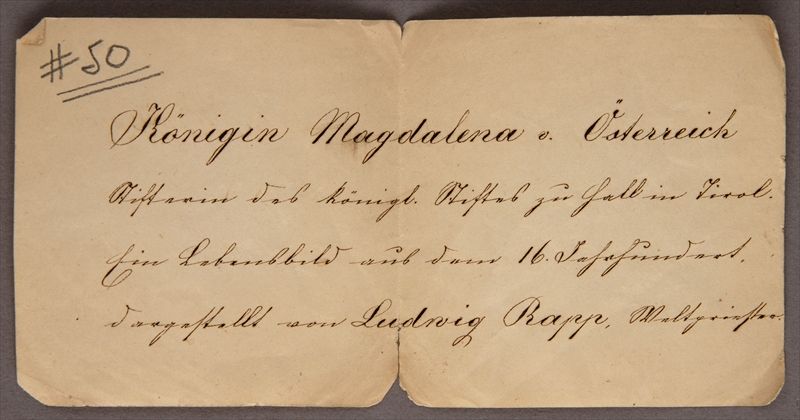 #50
Königin Magdalena v. Österreich
Stifterin des königl. Stiftes zu Hall in Tirol.
Ein Lebensbild aus dem 16. Jahrhundert,
dargestellt von Ludwig Rapp, Weltpriester.